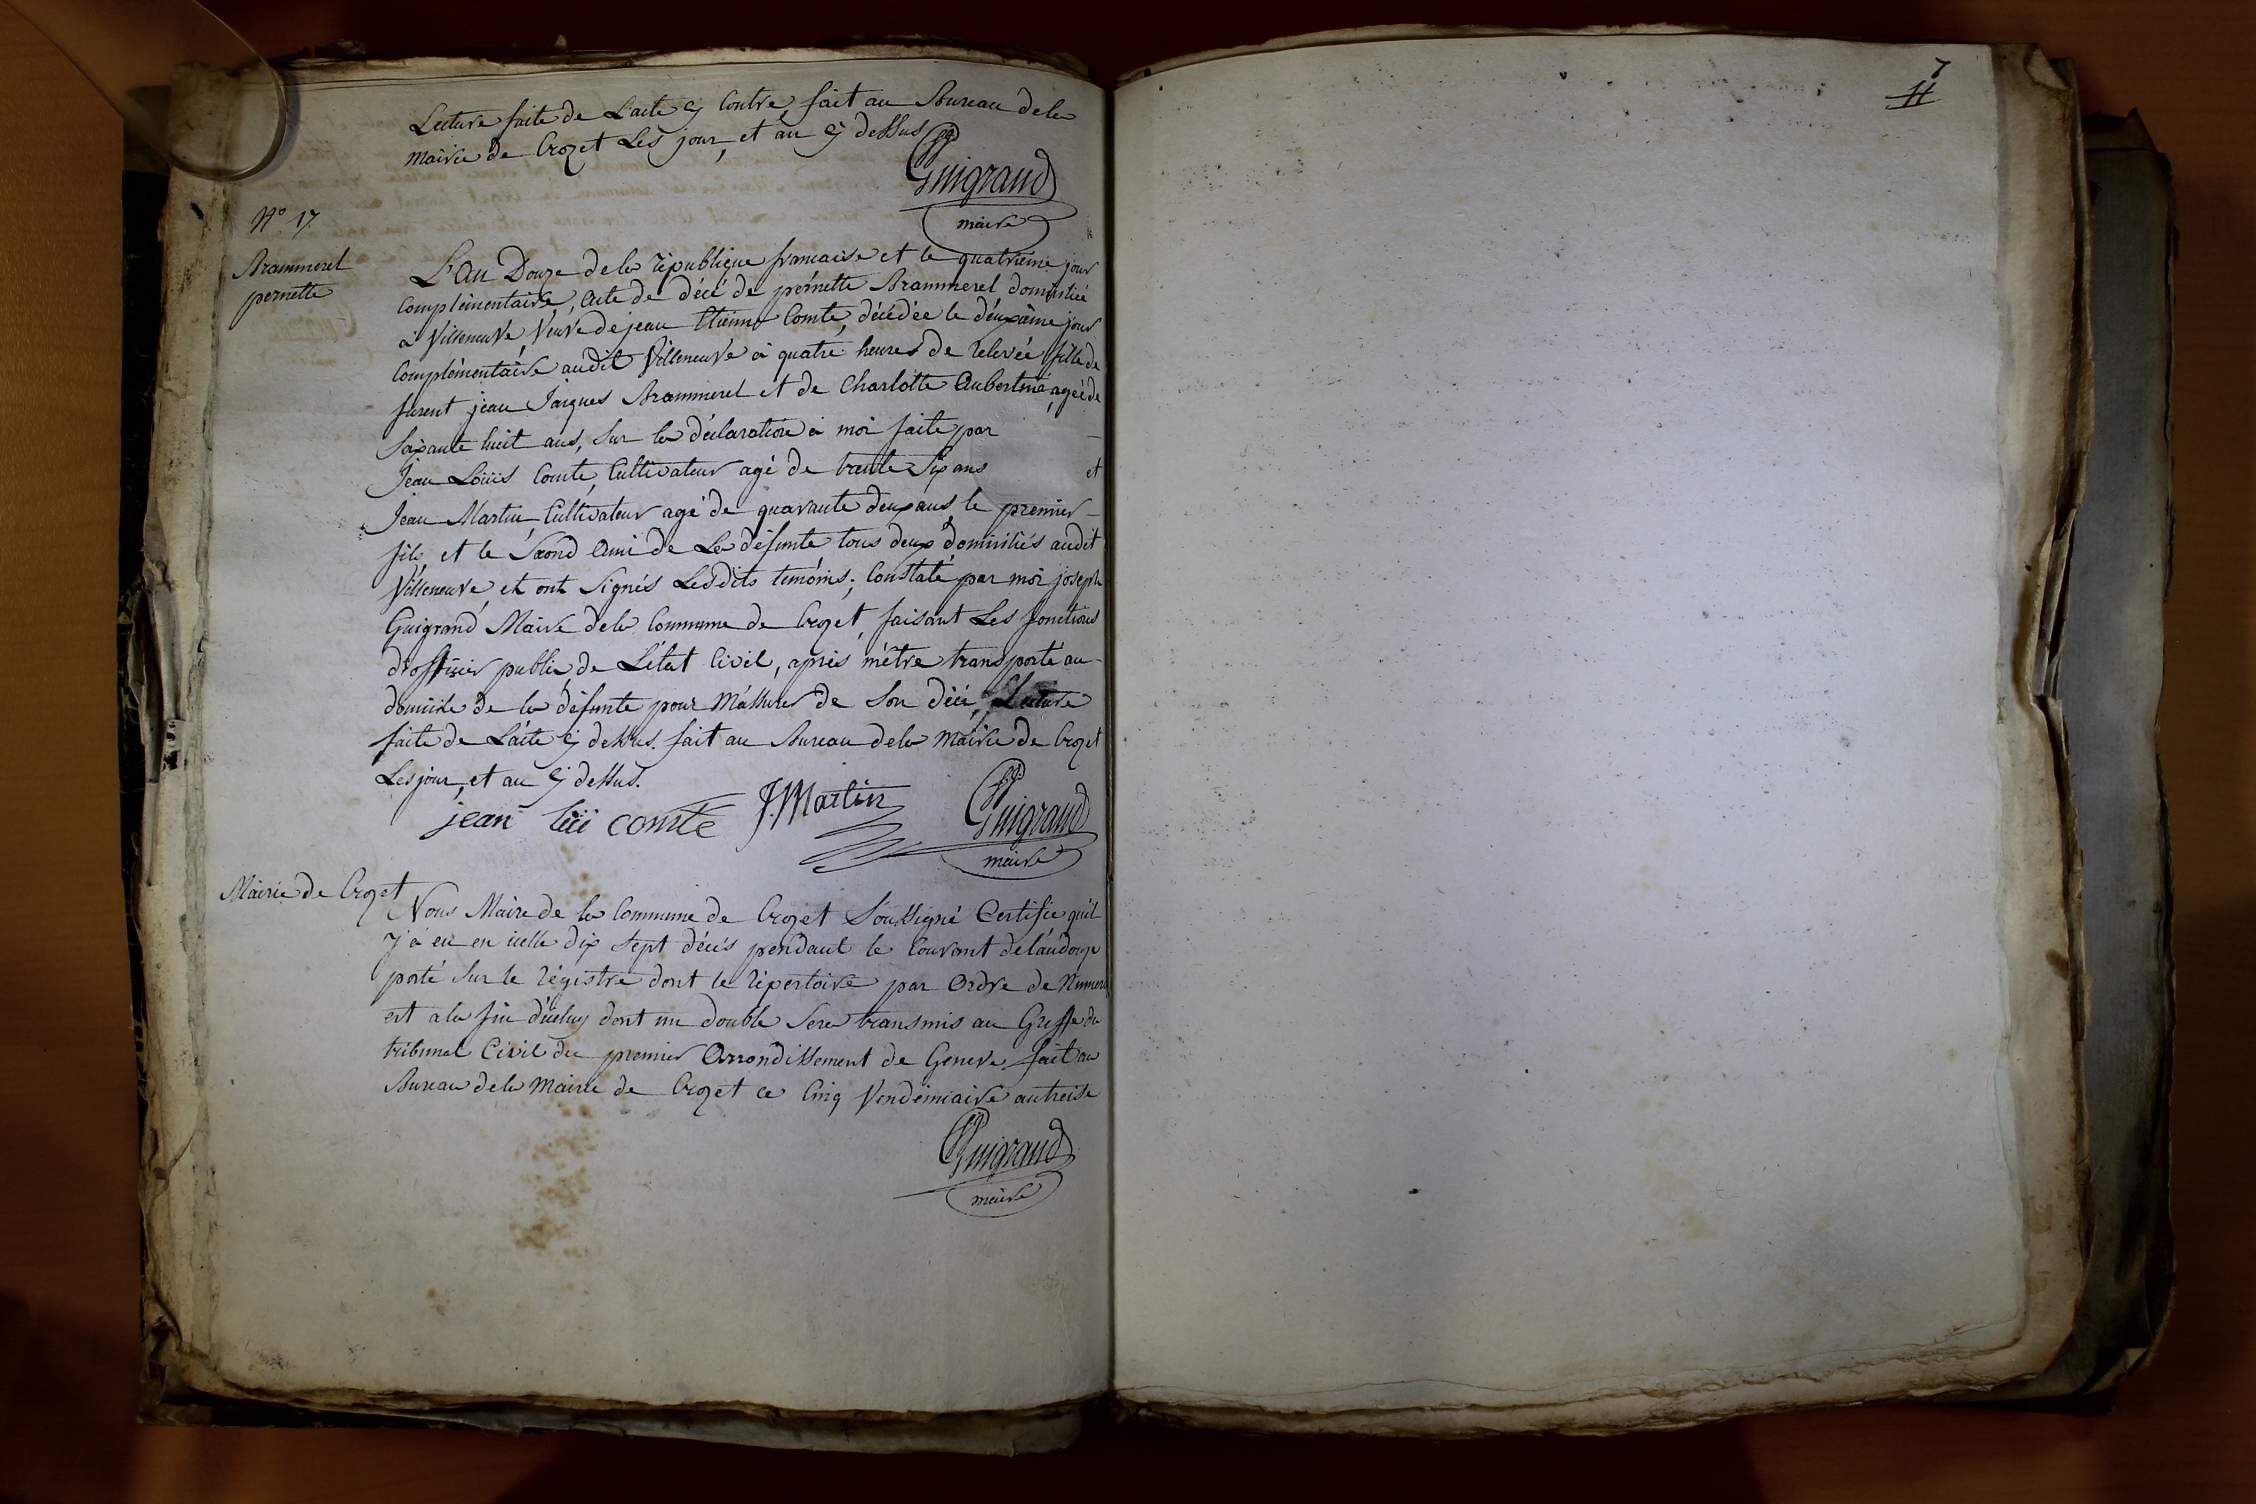 Lecture faite de L'acte cy Contre, fait au Bureau dela
Mairie de Crozet Les jour, et an cy dessus
Guigrand
maire
N° 17.
Brammerel
pernette
L'An Douze dela république francaise et le quatrième jour
Complèmentaire, Acte de décé de pernette Brammerel domiciliée
à Villeneuve, Veuve de jean Etienne Comte, décédée le deuxième jour
Complèmentaire audit Villeneuve à quatre heures de relevée fille de
furent jean Jacques Brammerel et de Charlotte Aubertine, agée de
Soixante huit ans, Sur la déclaration à moi faite par
Jean Loüis Comte, Cultivateur agé de trente Six ans et
Jean Martin Cultivateur agé de quarante deux ans, le premier
fils et le Second Ami de La défunte tous deux domiciliés audit
Villeneuve, et ont Signés Lesdits témoins; Constaté par moi joseph
Guigrand Maire dela Commune de Crozet, faisant Les fonctions
d'officier public de L'état Civil, après mêtre transporté au
domicile de la défunte pour M'assurer de Son décé, Lecture
faite de L'acte cy dessus. fait au Bureau dela Mairie de Crozet
Les jour, et an cy dessus.
jean lüi comte J. Martin Guigrand
maire
Mairie de Crozet
Nous Maire de la Commune de Crozet Soussigné Certifie qu'il
y a eu en icelle dix Sept décès pendant le Courant de l'an douze
porté Sur le régistre dont le répertoire par Ordre de Numero
est a la fin d'iceluy dont un double Sera transmis au Greffe du
tribunal Civil du premier Arrondissement de Geneve. fait au
Bureau dela Mairie de Crozet ce Cinq Vendémiaire an treise
Guigrand
maire
7